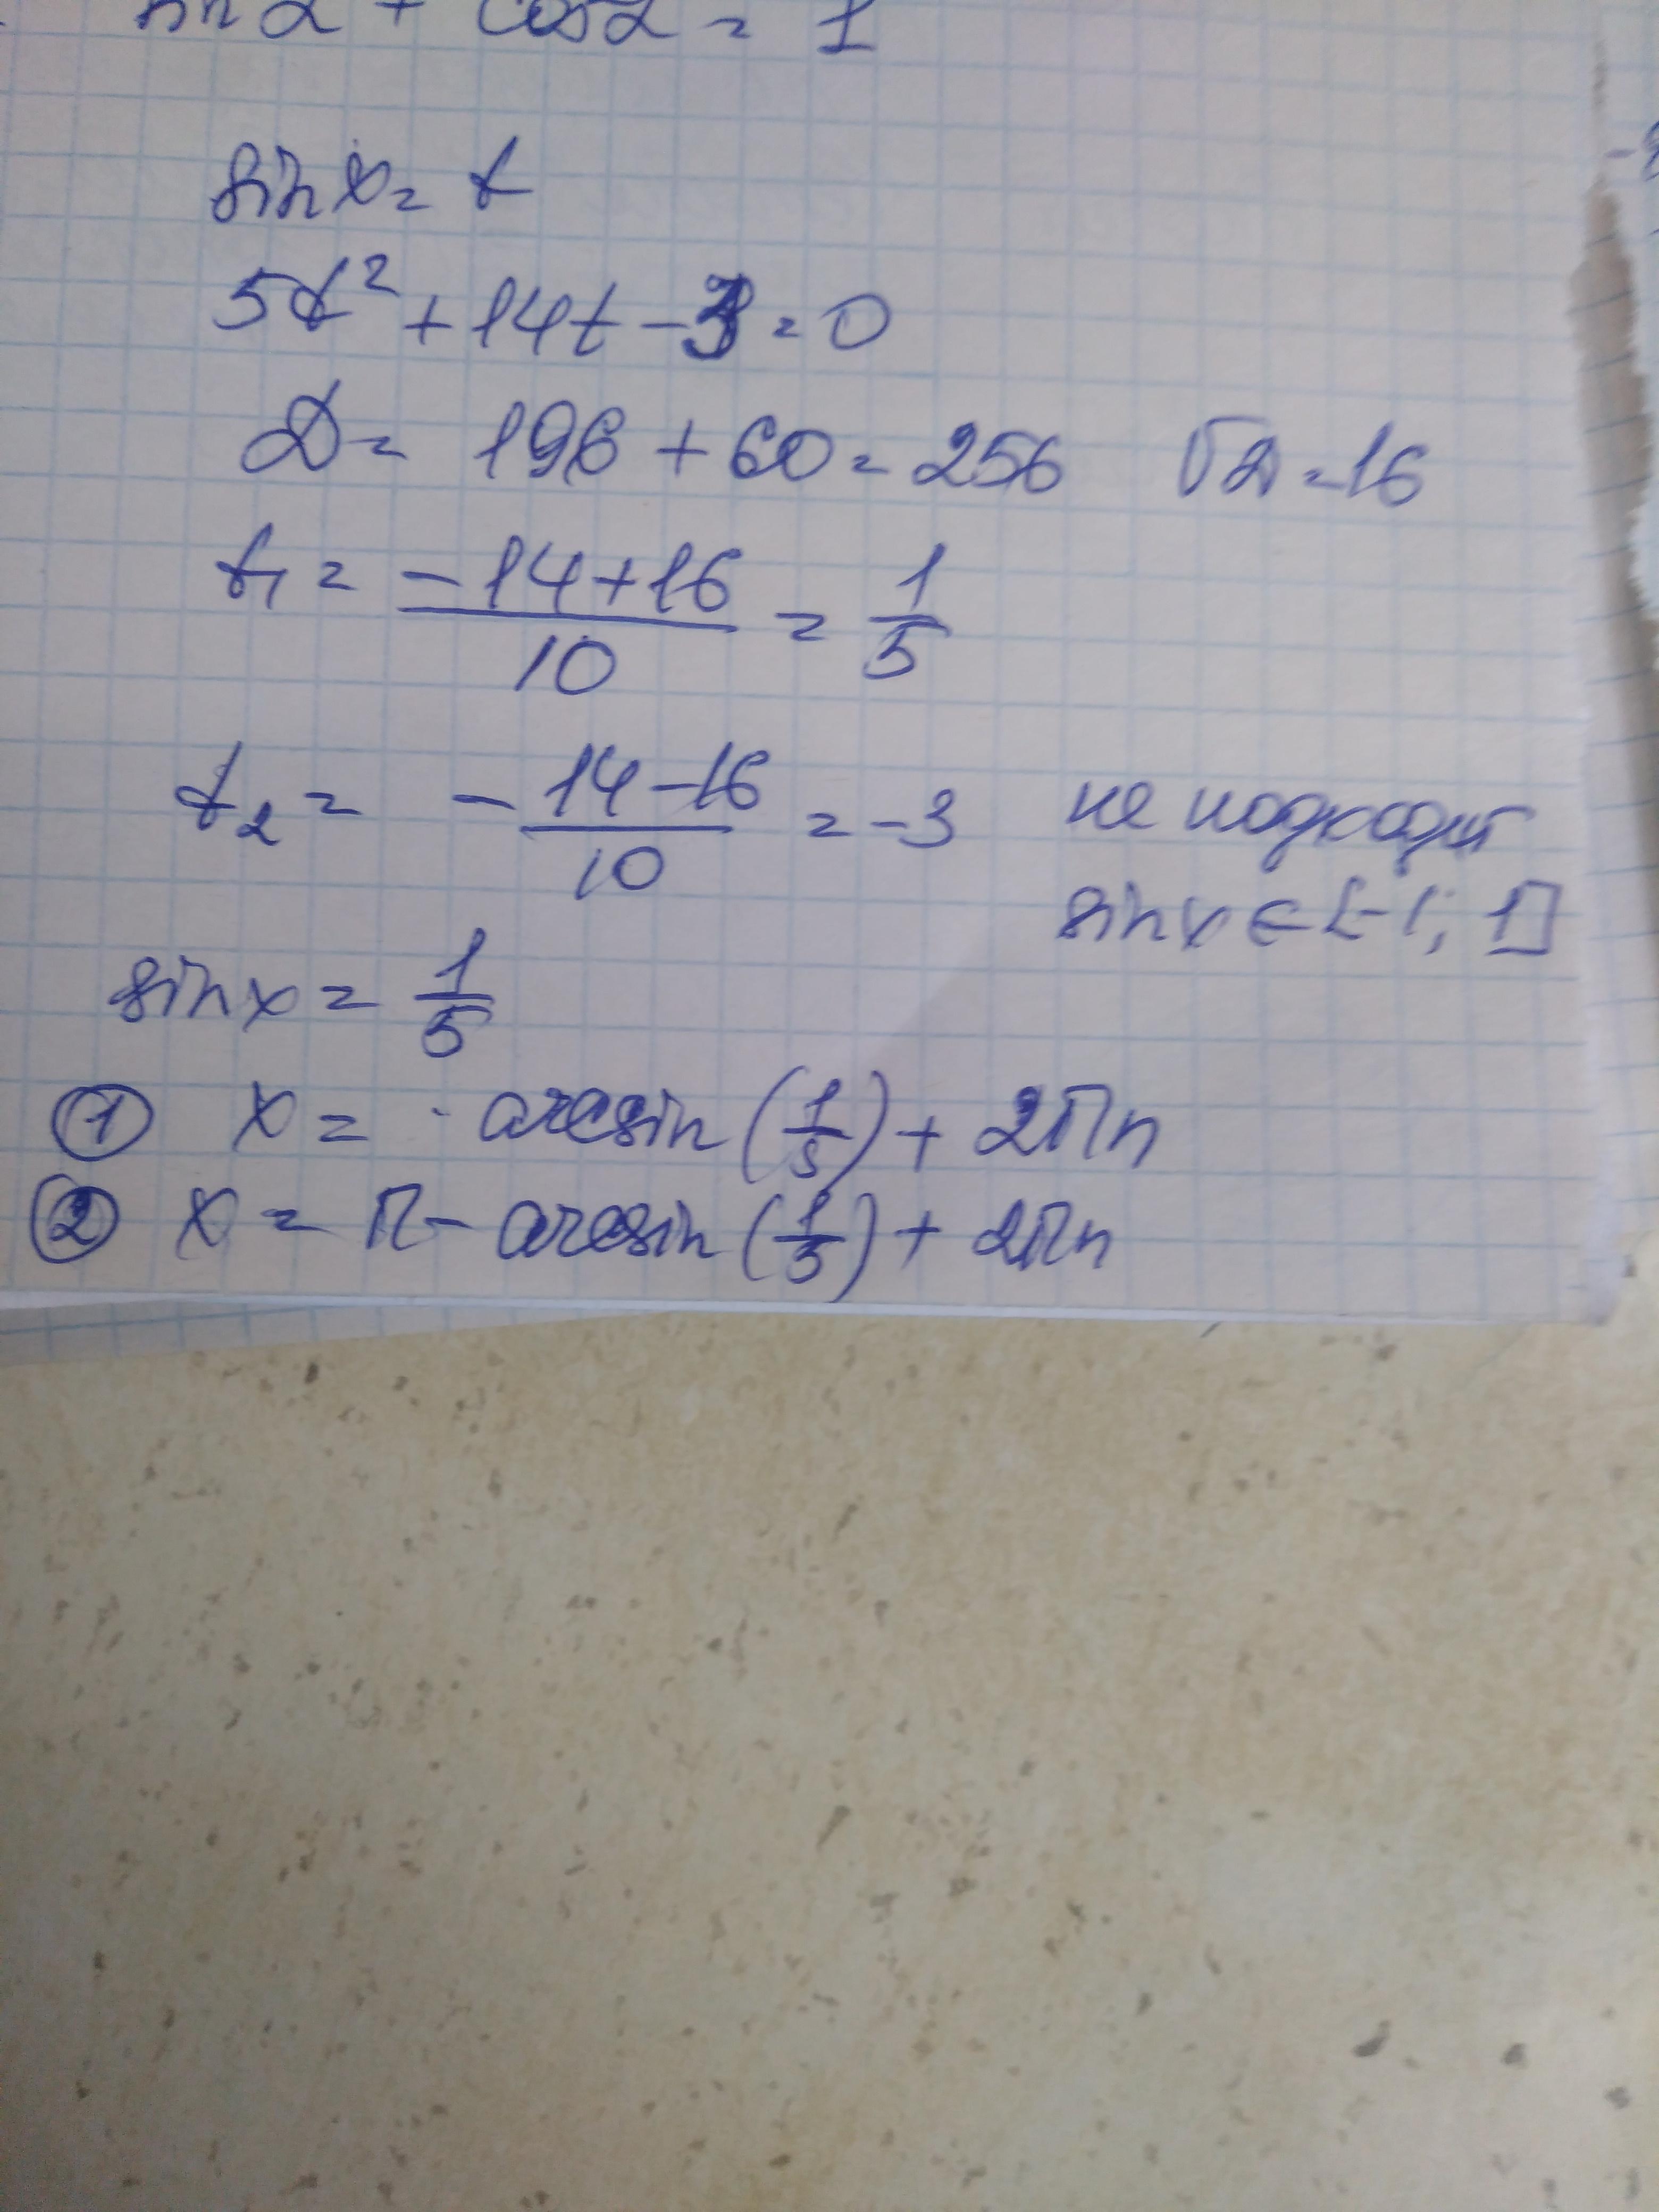 sin α + cos α = 1
sin x = t
5t² + 14t - 3 = 0
D = 196 + 60 = 256 √D = 16
t₁ = (-14+16)/10 = 1/5
t₂ = -(14-16)/10 = -3 не подходит
sin x ∈ [-1; 1]
sin x = 1/5
① x = arcsin (1/5) + 2πn
② x = π - arcsin (1/5) + 2πn